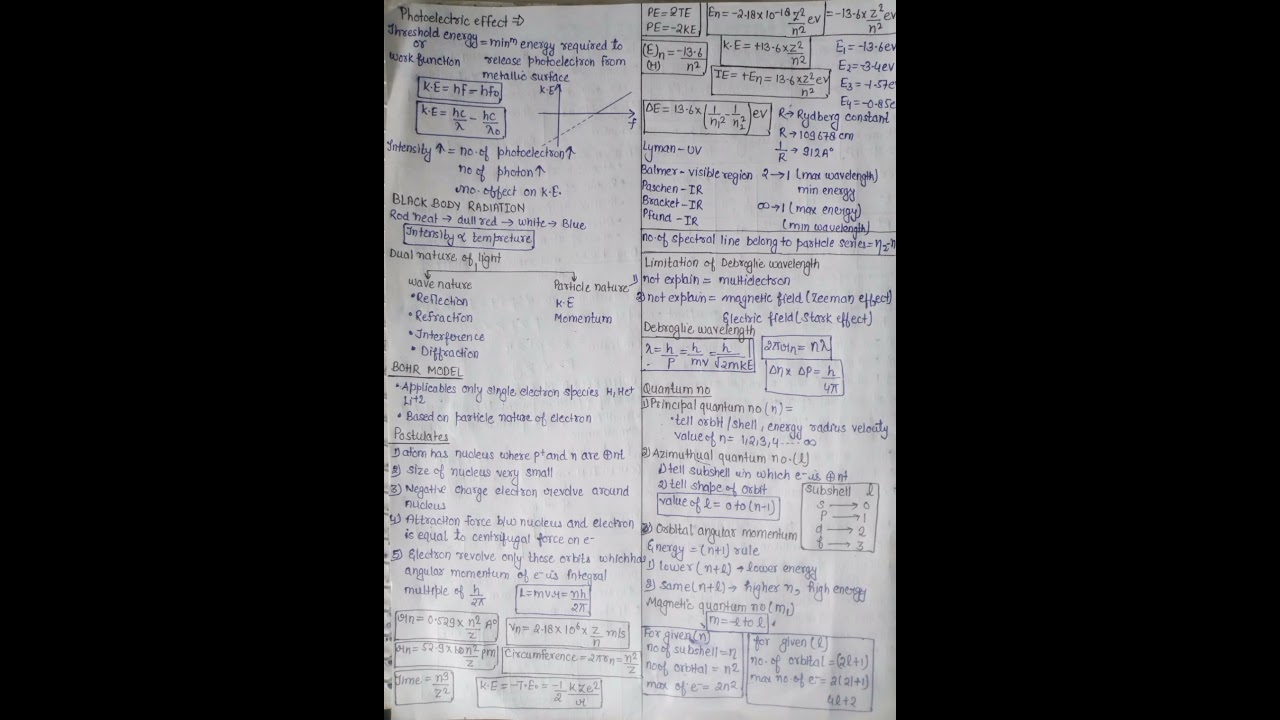 Photoelectric effect ⇒
Threshold energy = minᵐ energy required to
or
work function release photoelectron from
metallic surface
K.E = hf - hf₀
K.E = hc/λ - hc/λ₀
K.E
f
Intensity ↑ = no. of photoelectron ↑
no of photon ↑
no. effect on K.E.
BLACK BODY RADIATION
Rod heat → dull red → white → Blue
Intensity ∝ tempreture
Dual nature of light
wave nature Particle nature
• Reflection K.E
• Refraction Momentum
• Interference
• Diffraction
BOHR MODEL
• Applicables only single electron species H, He+
Li+2
• Based on particle nature of electron
Postulates
1) atom has nucleus where p+ and n are ⊕nt
2) size of nucleus very small
3) Negative charge electron revolve around
nucleus
4) Attraction force b/w nucleus and electron
is equal to centrifugal force on e-
5) Electron revolve only those orbits which has
angular momentum of e- is Integral
multiple of h/2π L = mvr = nh/2π
rn = 0.529 × n²/z A° Vn = 2.18 × 10⁶ × z/n m/s
rn = 52.9 × n²/z pm Circumference = 2πrn = n²/z
Time = n³/z² K.E = -T.E. = -1/2 kze²/r
PE = 2TE
PE = -2KE
En = -2.18 × 10⁻¹⁸ z²/n² ev = -13.6 × z²/n² ev
(E)n = -13.6/n²
(H)
K.E = +13.6 × z²/n²
IE = +En = 13.6 × z²/n² ev
E₁ = -13.6 ev
E₂ = -3.4 ev
E₃ = -1.57 e
E₄ = -0.85 e
ΔE = 13.6 × (1/n₁² - 1/n₂²) ev
R → Rydberg constant
R → 109678 cm
1/R → 912 A°
Lyman - UV
Balmer - visible region 2 → 1 (max wavelength)
Paschen - IR min energy
Bracket - IR ∞ → 1 (max energy)
Pfund - IR (min wavelength)
no. of spectral line belong to particle series = n₂ - n
Limitation of Debroglie wavelength
1) not explain = multielectron
2) not explain = magnetic field (Zeeman effect)
Electric field (Stark effect)
Debroglie wavelength
λ = h/P = h/mv = h/√2mKE 2πrn = nλ
Δn × ΔP = h/4π
Quantum no
1) Principal quantum no (n) =
• tell orbit / shell, energy radius velocity
value of n = 1, 2, 3, 4 ..... ∞
2) Azimuthual quantum no. (l)
1) tell subshell in which e- is ⊕nt
2) tell shape of orbit
value of l = 0 to (n-1)
Subshell l
s → 0
p → 1
d → 2
f → 3
3) Orbital angular momentum
Energy = (n+1) rule
1) lower (n+l) → lower energy
2) same (n+l) → higher n, high energy
Magnetic quantum no (m₁)
m = -l to l
For given (n)
no of subshell = n
no of orbital = n²
max of e- = 2n²
for given (l)
no. of orbital = (2l+1)
max no. of e- = 2(2l+1)
4l+2